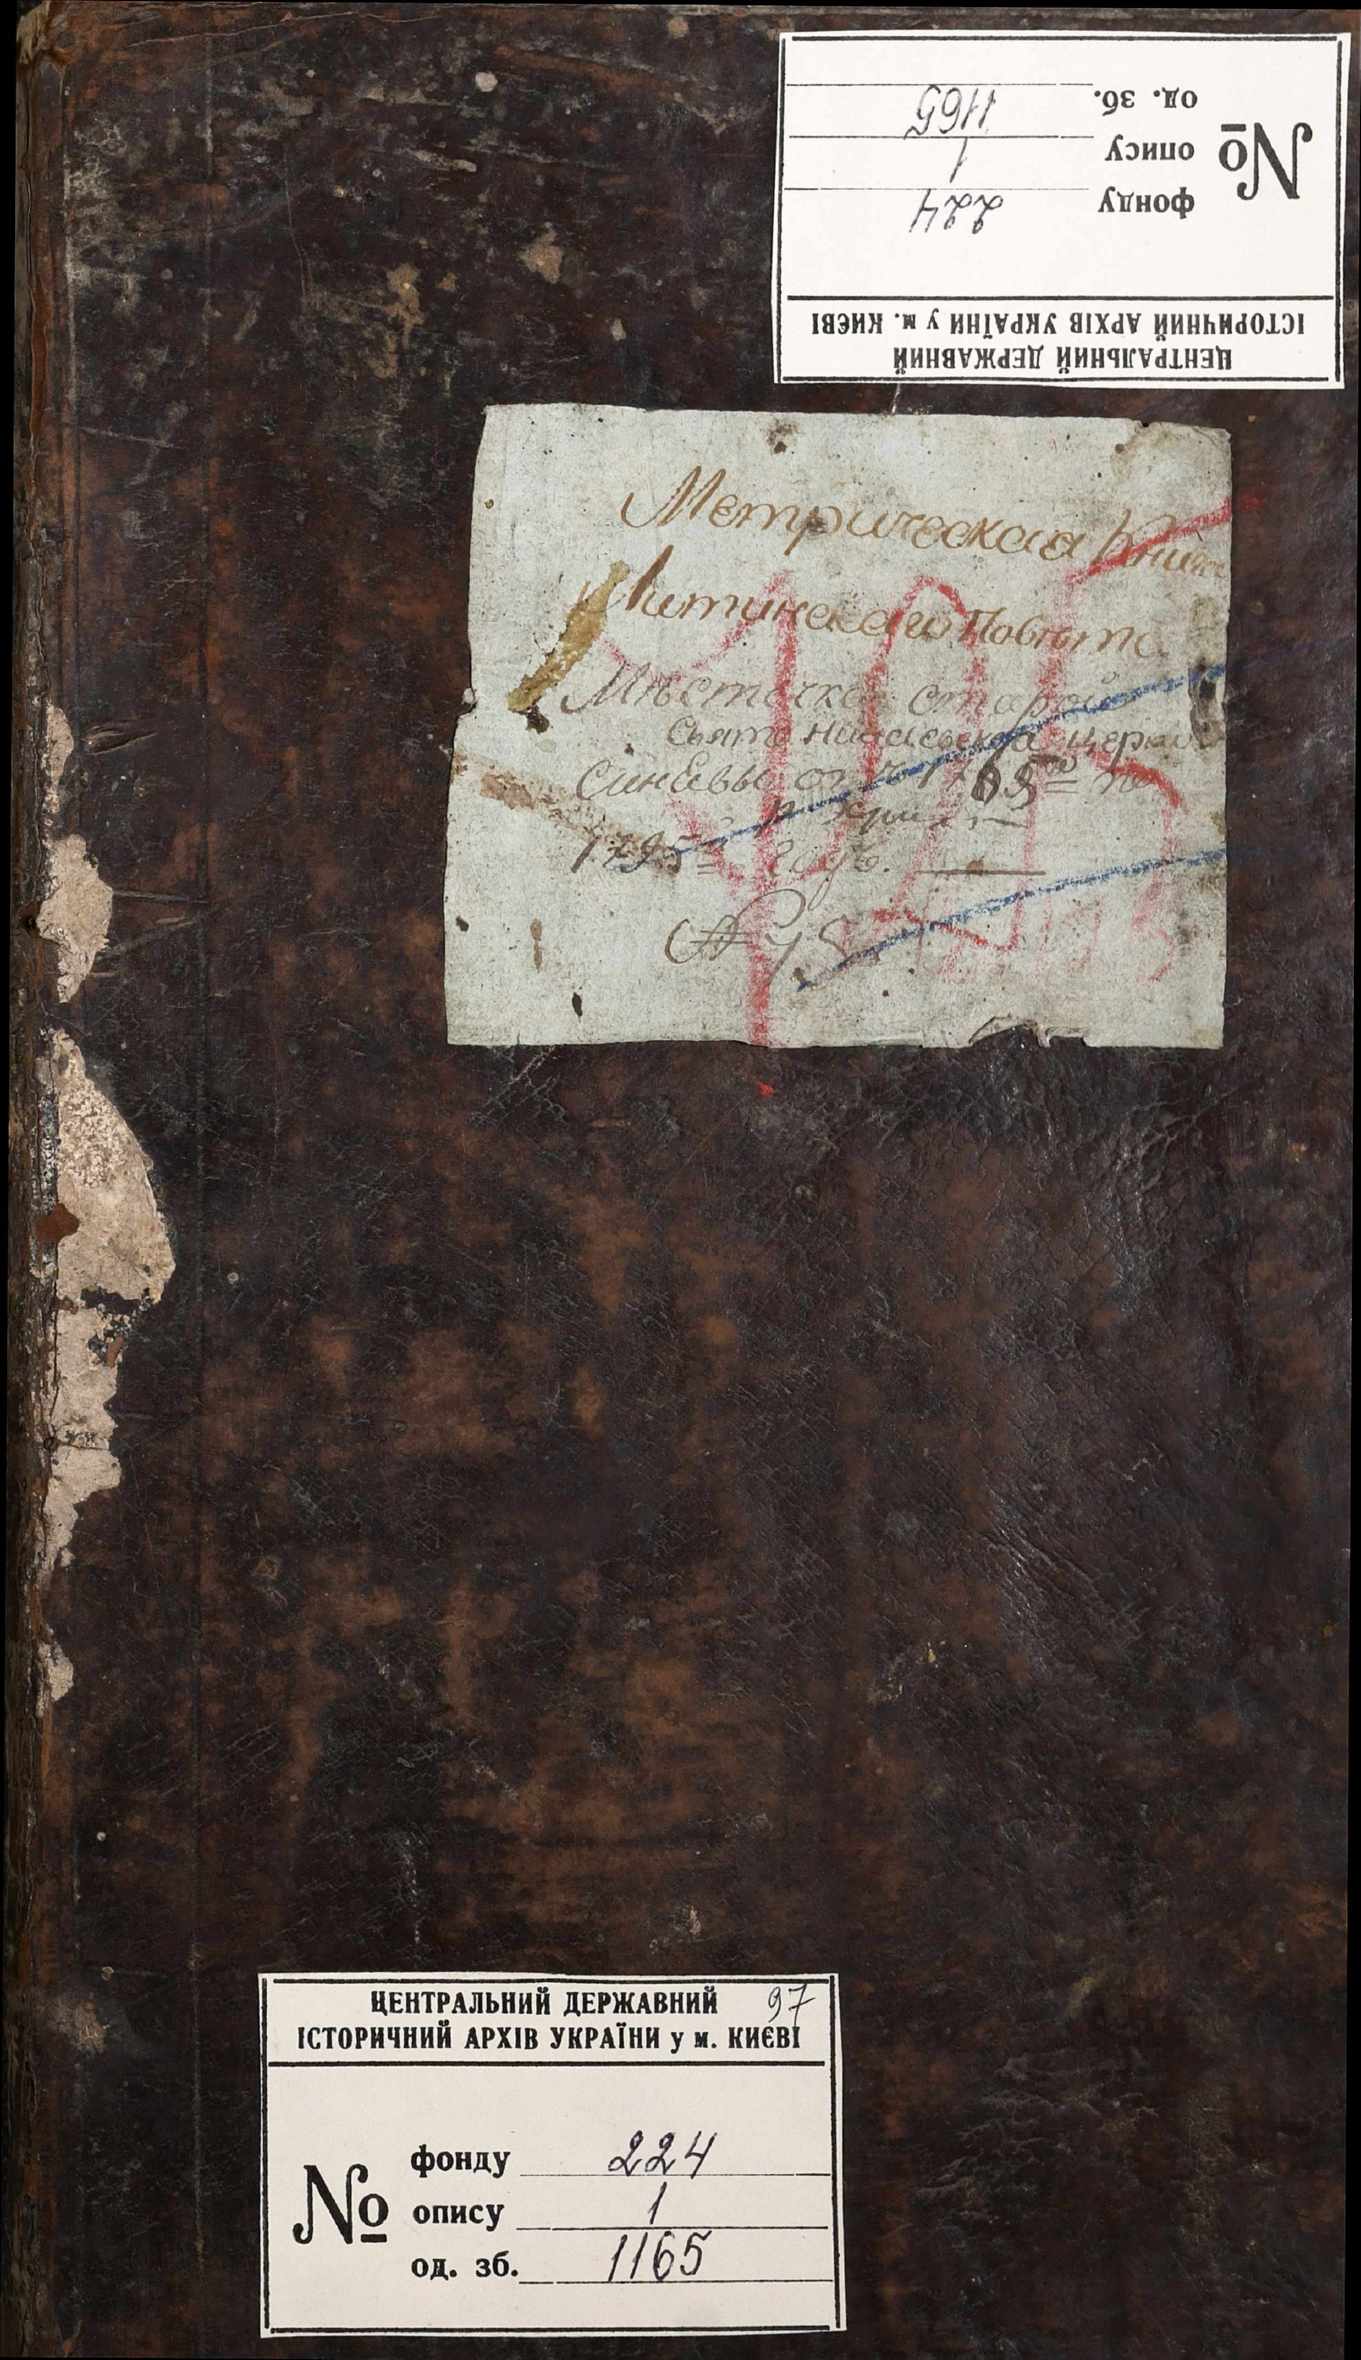 од. зб. 1165
опису 1
фонду 224
№
ЦЕНТРАЛЬНИЙ ДЕРЖАВНИЙ
ІСТОРИЧНИЙ АРХІВ УКРАЇНИ у м. КИЄВІ
Метрическая Книга
Литинскаго Повѣта
Мѣстечка старой
Свято церкви
Синявы от 1765го по
1795й годъ.
ЦЕНТРАЛЬНИЙ ДЕРЖАВНИЙ 97
ІСТОРИЧНИЙ АРХІВ УКРАЇНИ у м. КИЄВІ
№
фонду 224
опису 1
од. зб. 1165